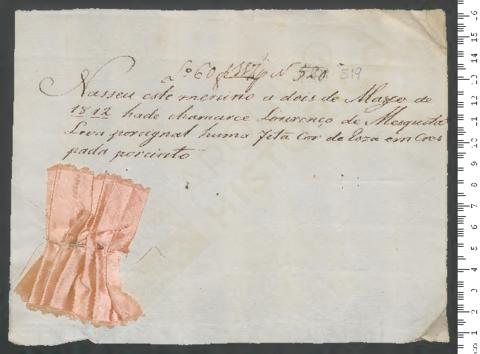 Lo 60 N 520 319
Nasseu este menino a dois de Mayo de
1812 hade chamarce Lourenço de Mesquita
Leva por cignal huma fita Cor de Roza em Cres
pada por cinto